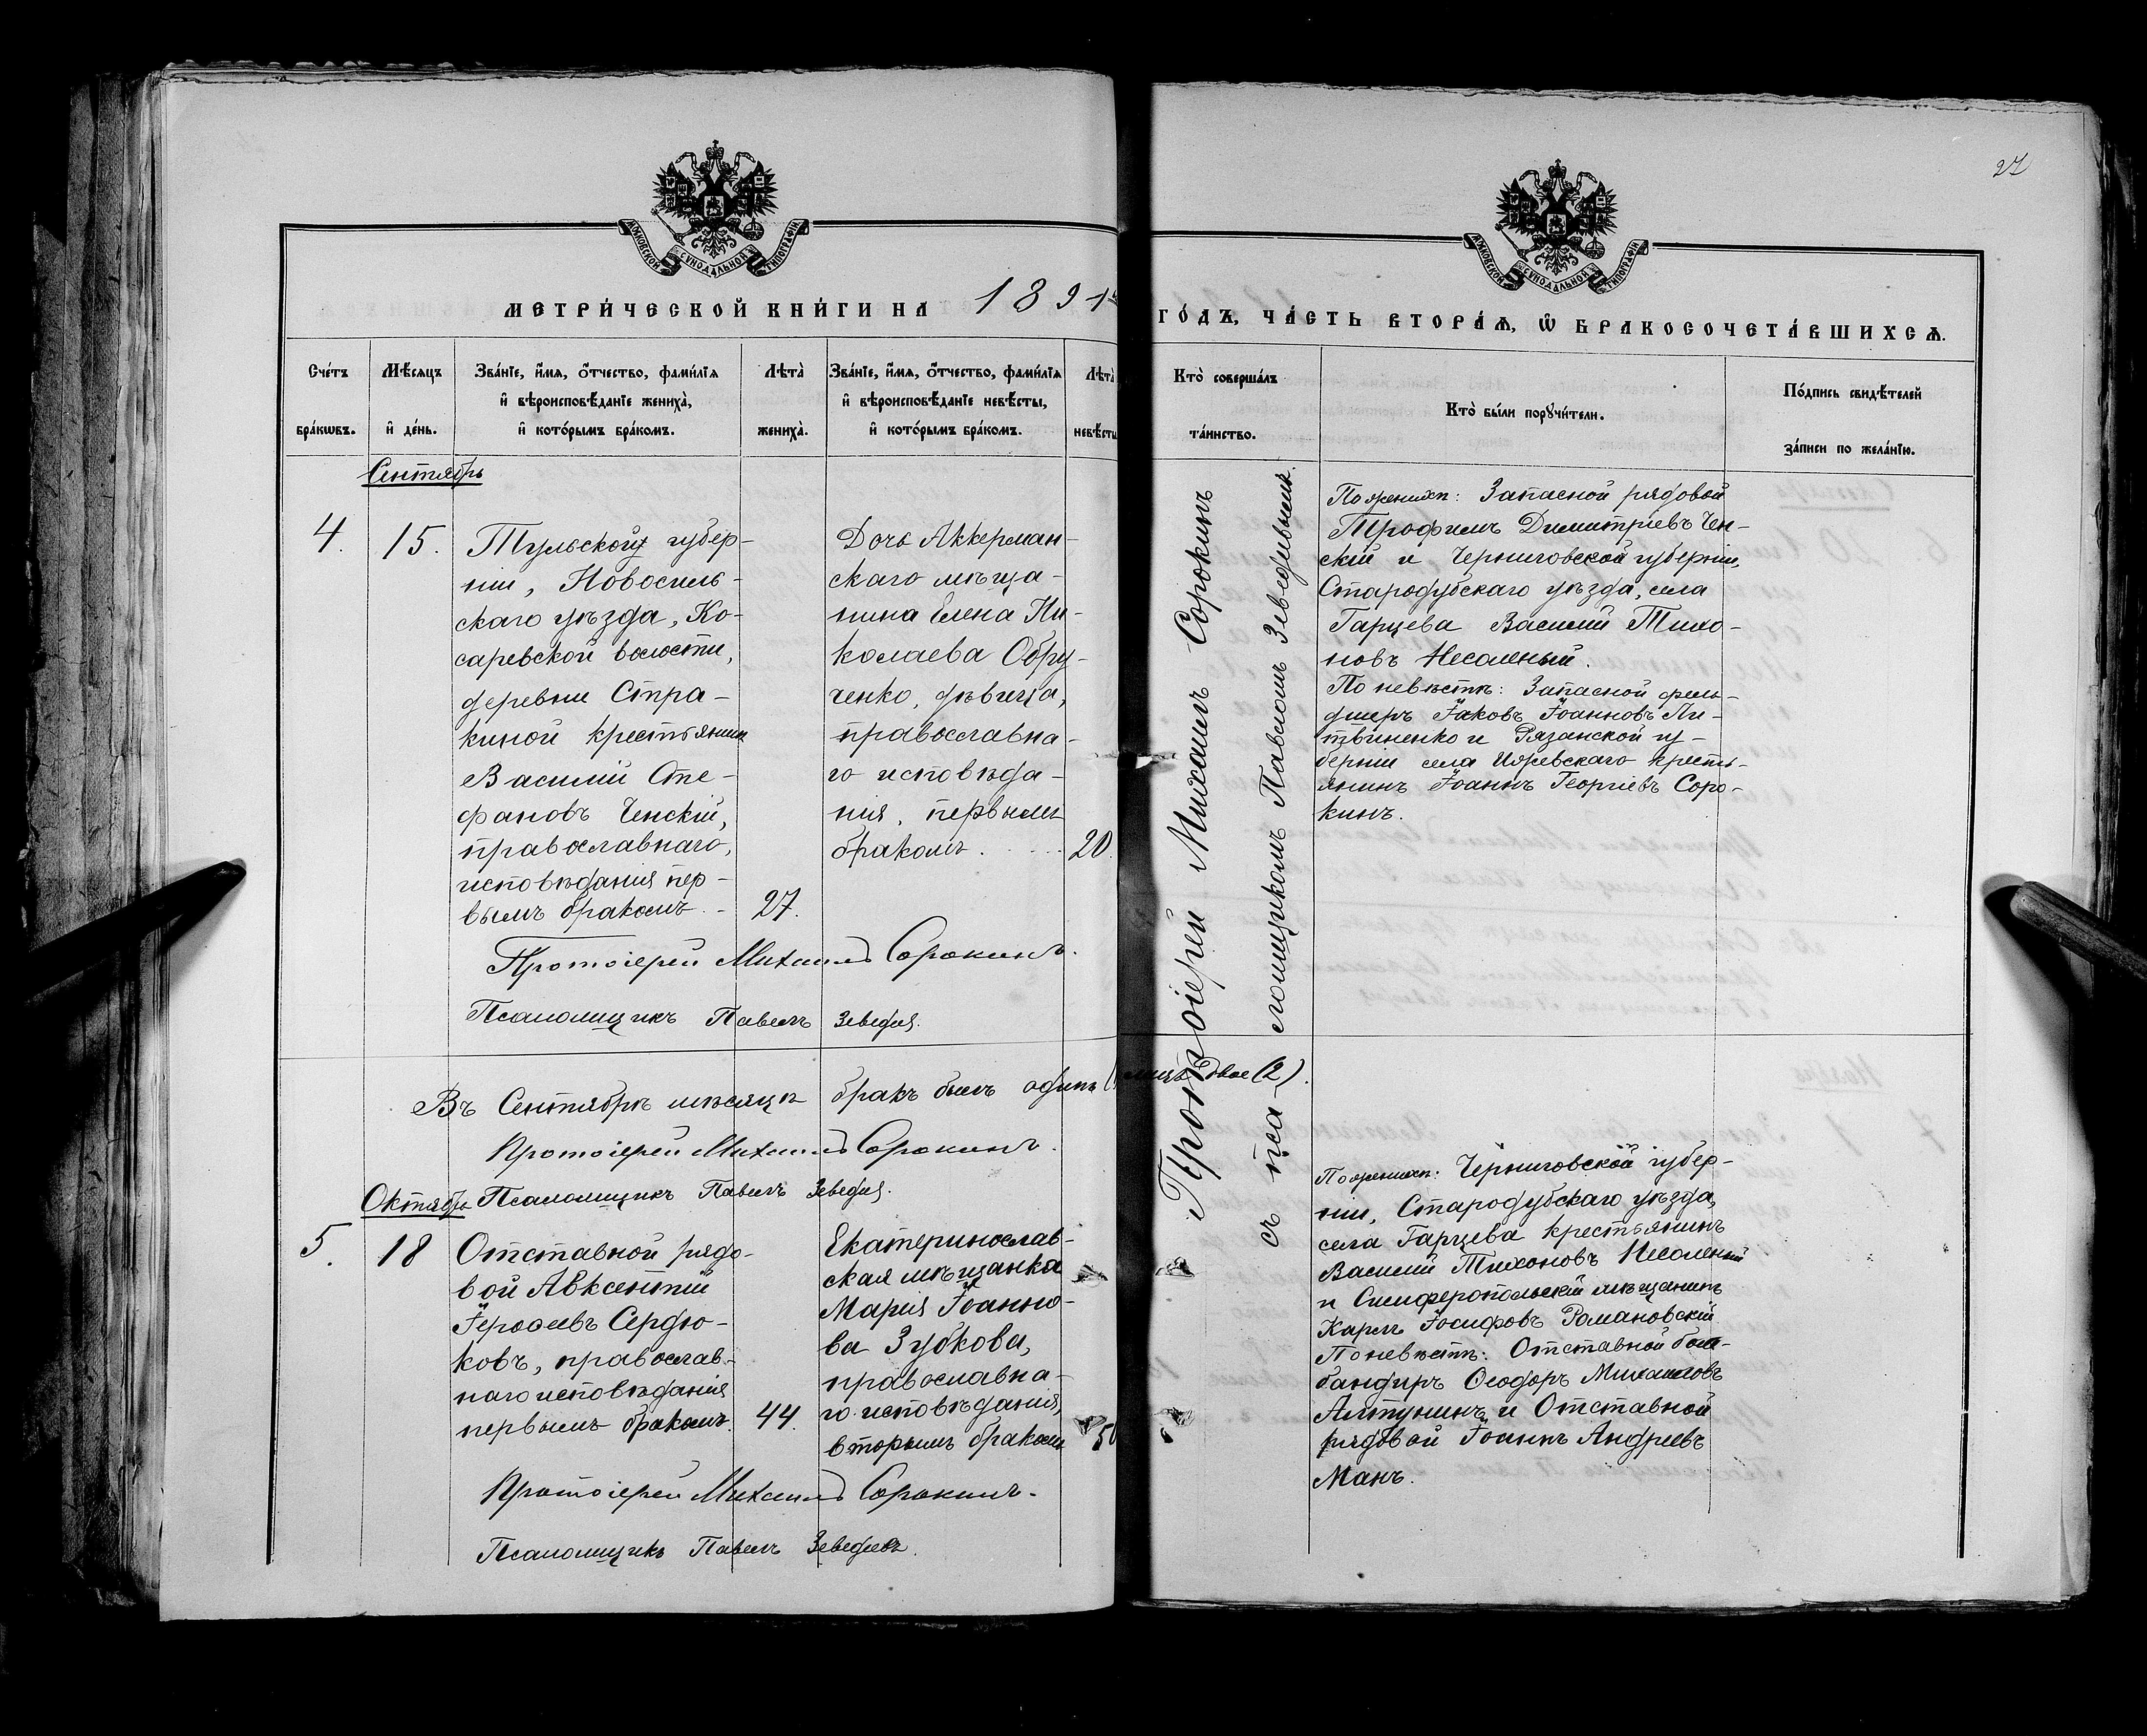 27
МОСКОВСКОЙ СѴНОДАЛЬНОЙ ТИПОГРАФІИ
МОСКОВСКОЙ СѴНОДАЛЬНОЙ ТИПОГРАФІИ
МЕТРИ́ЧЕСКОЙ КНИ́ГИ НА 1891
ГО́ДЪ, ЧА́СТЬ ВТОРА́Ѧ, Ѽ БРАКОСОЧЕТА́ВШИХСѦ.
Сче́тъ бра́кѡвъ.
Мѣ́сяцъ и҆ де́нь.
Зва́нїе, и҆́мя, ѻ҆́тчество, фами́лїя
и҆ вѣроисповѣ́данїе жениха̀,
и҆ кото́рымъ бра́комъ.
Лѣта̀ жениха̀.
Зва́нїе, и҆́мя, ѻ҆́тчество, фами́лїя
и҆ вѣроисповѣ́данїе невѣ́сты,
и҆ кото́рымъ бра́комъ.
Лѣта̀ невѣ́сты
Кто̀ соверша́лъ та́инство.
Кто̀ бы́ли порꙋчи́тели.
По́дпись свидѣ́телей
за́писи по жела́нїю.
Сентябрь
4.
15.
Тульской губер-
ніи, Новосиль-
скаго уѣзда, Ко-
саревской волости,
деревни Стра-
киной крестьянинъ
Василій Сте-
фановъ Ченскій,
православнаго,
исповѣданія пер-
вымъ бракомъ. -
27.
Дочь Аккерман-
скаго мѣща-
нина Елена Ни-
колаева Обру-
ченко, дѣвица,
православна-
го исповѣда-
нія, первымъ
бракомъ.
20.
Протоіерей Михаилъ Сорокинъ
съ пса-ломщикомъ Павломъ Зеведѣевымъ.
По женихѣ: Запасной рядовой
Трофимъ Димитріевъ Чен-
скій и Черниговской губерніи,
Стародубскаго уѣзда, села
Гарцева Василій Тихо-
новъ Несоленый.
По невѣстѣ: Запасной фель-
дшеръ Іаковъ Іоанновъ Ли-
твиненко и Рязанской гу-
берніи села Ижевскаго кресть-
янинъ Іоаннъ Георгіевъ Соро-
кинъ.
Протоіерей Михаилъ Сорокинъ.
Псаломщикъ Павелъ Зеведѣй.
Въ Сентябрѣ мѣсяцѣ бракъ былъ одинъ ( лицъ двое (2).
Протоіерей Михаилъ Сорокинъ.
Псаломщикъ Павелъ Зеведѣй.
Октябрь
5.
18
Отставной рядо-
вой Авксентій
Іероѳеевъ Сердю-
ковъ, православ-
наго исповѣданія
первымъ бракомъ.
44.
Екатеринослав-
ская мѣщанка
Марія Іоанно-
ва Зубкова,
православна-
го исповѣданія,
вторымъ бракомъ
50
По женихѣ: Черниговской губер-
ніи, Стародубскаго уѣзда,
села Гарцева крестьянинъ
Василій Тихоновъ Несоленый
и Симферопольскій мѣщанинъ
Карлъ Іосифовъ Романовскій
По невѣстѣ: Отставной бом-
бандиръ Ѳеодоръ Михаиловъ
Алтунинъ и Отставной
рядовой Іоаннъ Андреевъ
Манъ.
Протоіерей Михаилъ Сорокинъ.
Псаломщикъ Павелъ Зеведѣевъ.